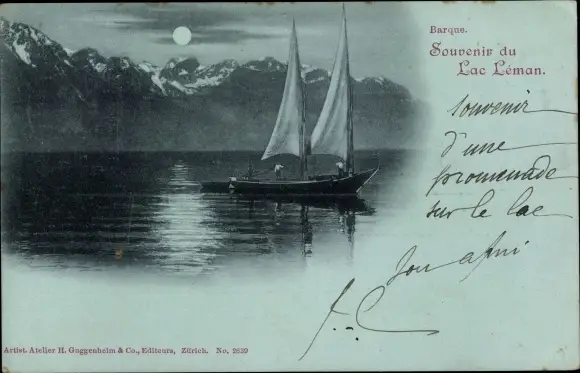 Barque.
Souvenir du
Lac Léman.
souvenir
d'une
promenade
sur le lac
Ton ami
Artist. Atelier H. Guggenheim & Co., Editeurs, Zürich. No. 2639